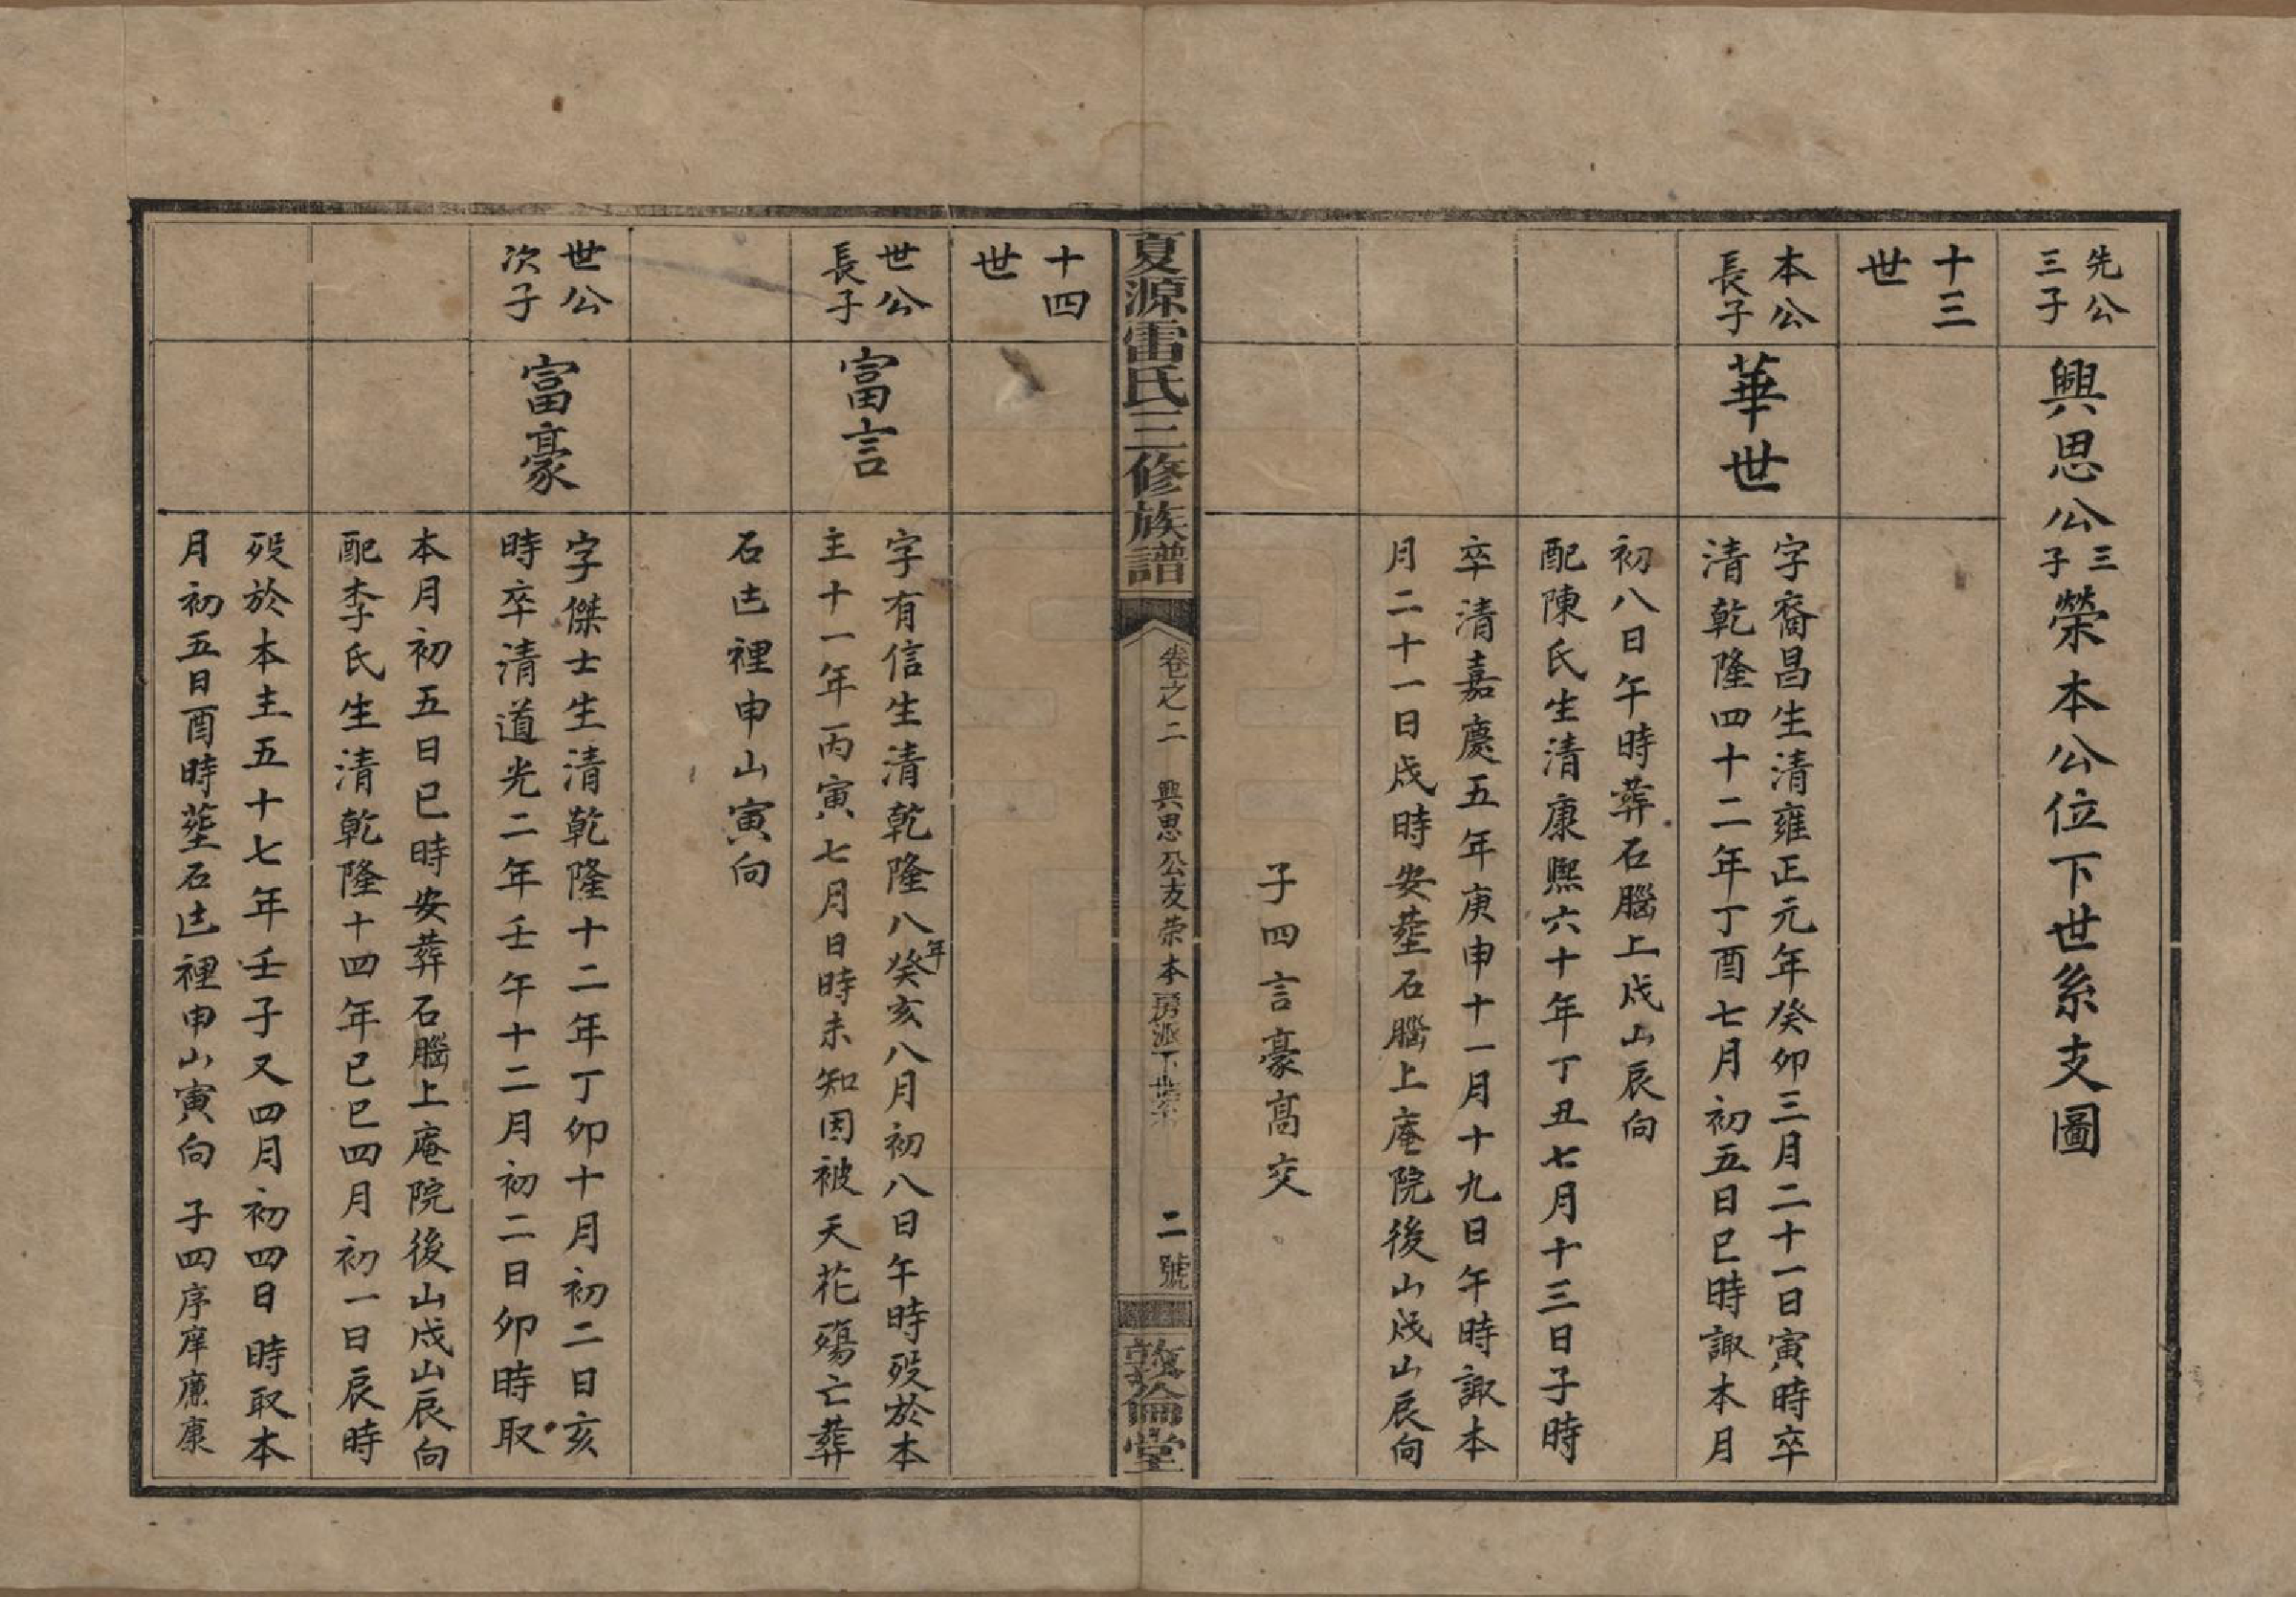 先公
三子
興思公三子榮本公位下世系支圖
十三
世
本公
長子
華世
字裔昌生清雍正元年癸卯三月二十一日寅時卒
清乾隆四十二年丁酉七月初五日巳時諏本月
初八日午時葬石腦上戌山辰向
配陳氏生清康熙六十年丁丑七月十三日子時
卒清嘉慶五年庚申十一月十九日午時諏本
月二十一日戌時安塟石腦上庵院後山戌山辰向
子四言豪高交
夏源雷氏三修族譜
卷之二 興思公支荣本房派下世系 二號
敦倫堂
十四
世
世公
長子
富言
字有信生清乾隆八年癸亥八月初八日午時殁於本
主十一年丙寅七月日時未知因被天花殤亡葬
石㐖裡申山寅向
世公
次子
富豪
字傑士生清乾隆十二年丁卯十月初二日亥
時卒清道光二年壬午十二月初二日卯時取
本月初五日巳時安葬石腦上庵院後山戌山辰向
配李氏生清乾隆十四年己巳四月初一日辰時
殁於本主五十七年壬子又四月初四日時取本
月初五日酉時塟石㐖裡申山寅向 子四序庠廉康